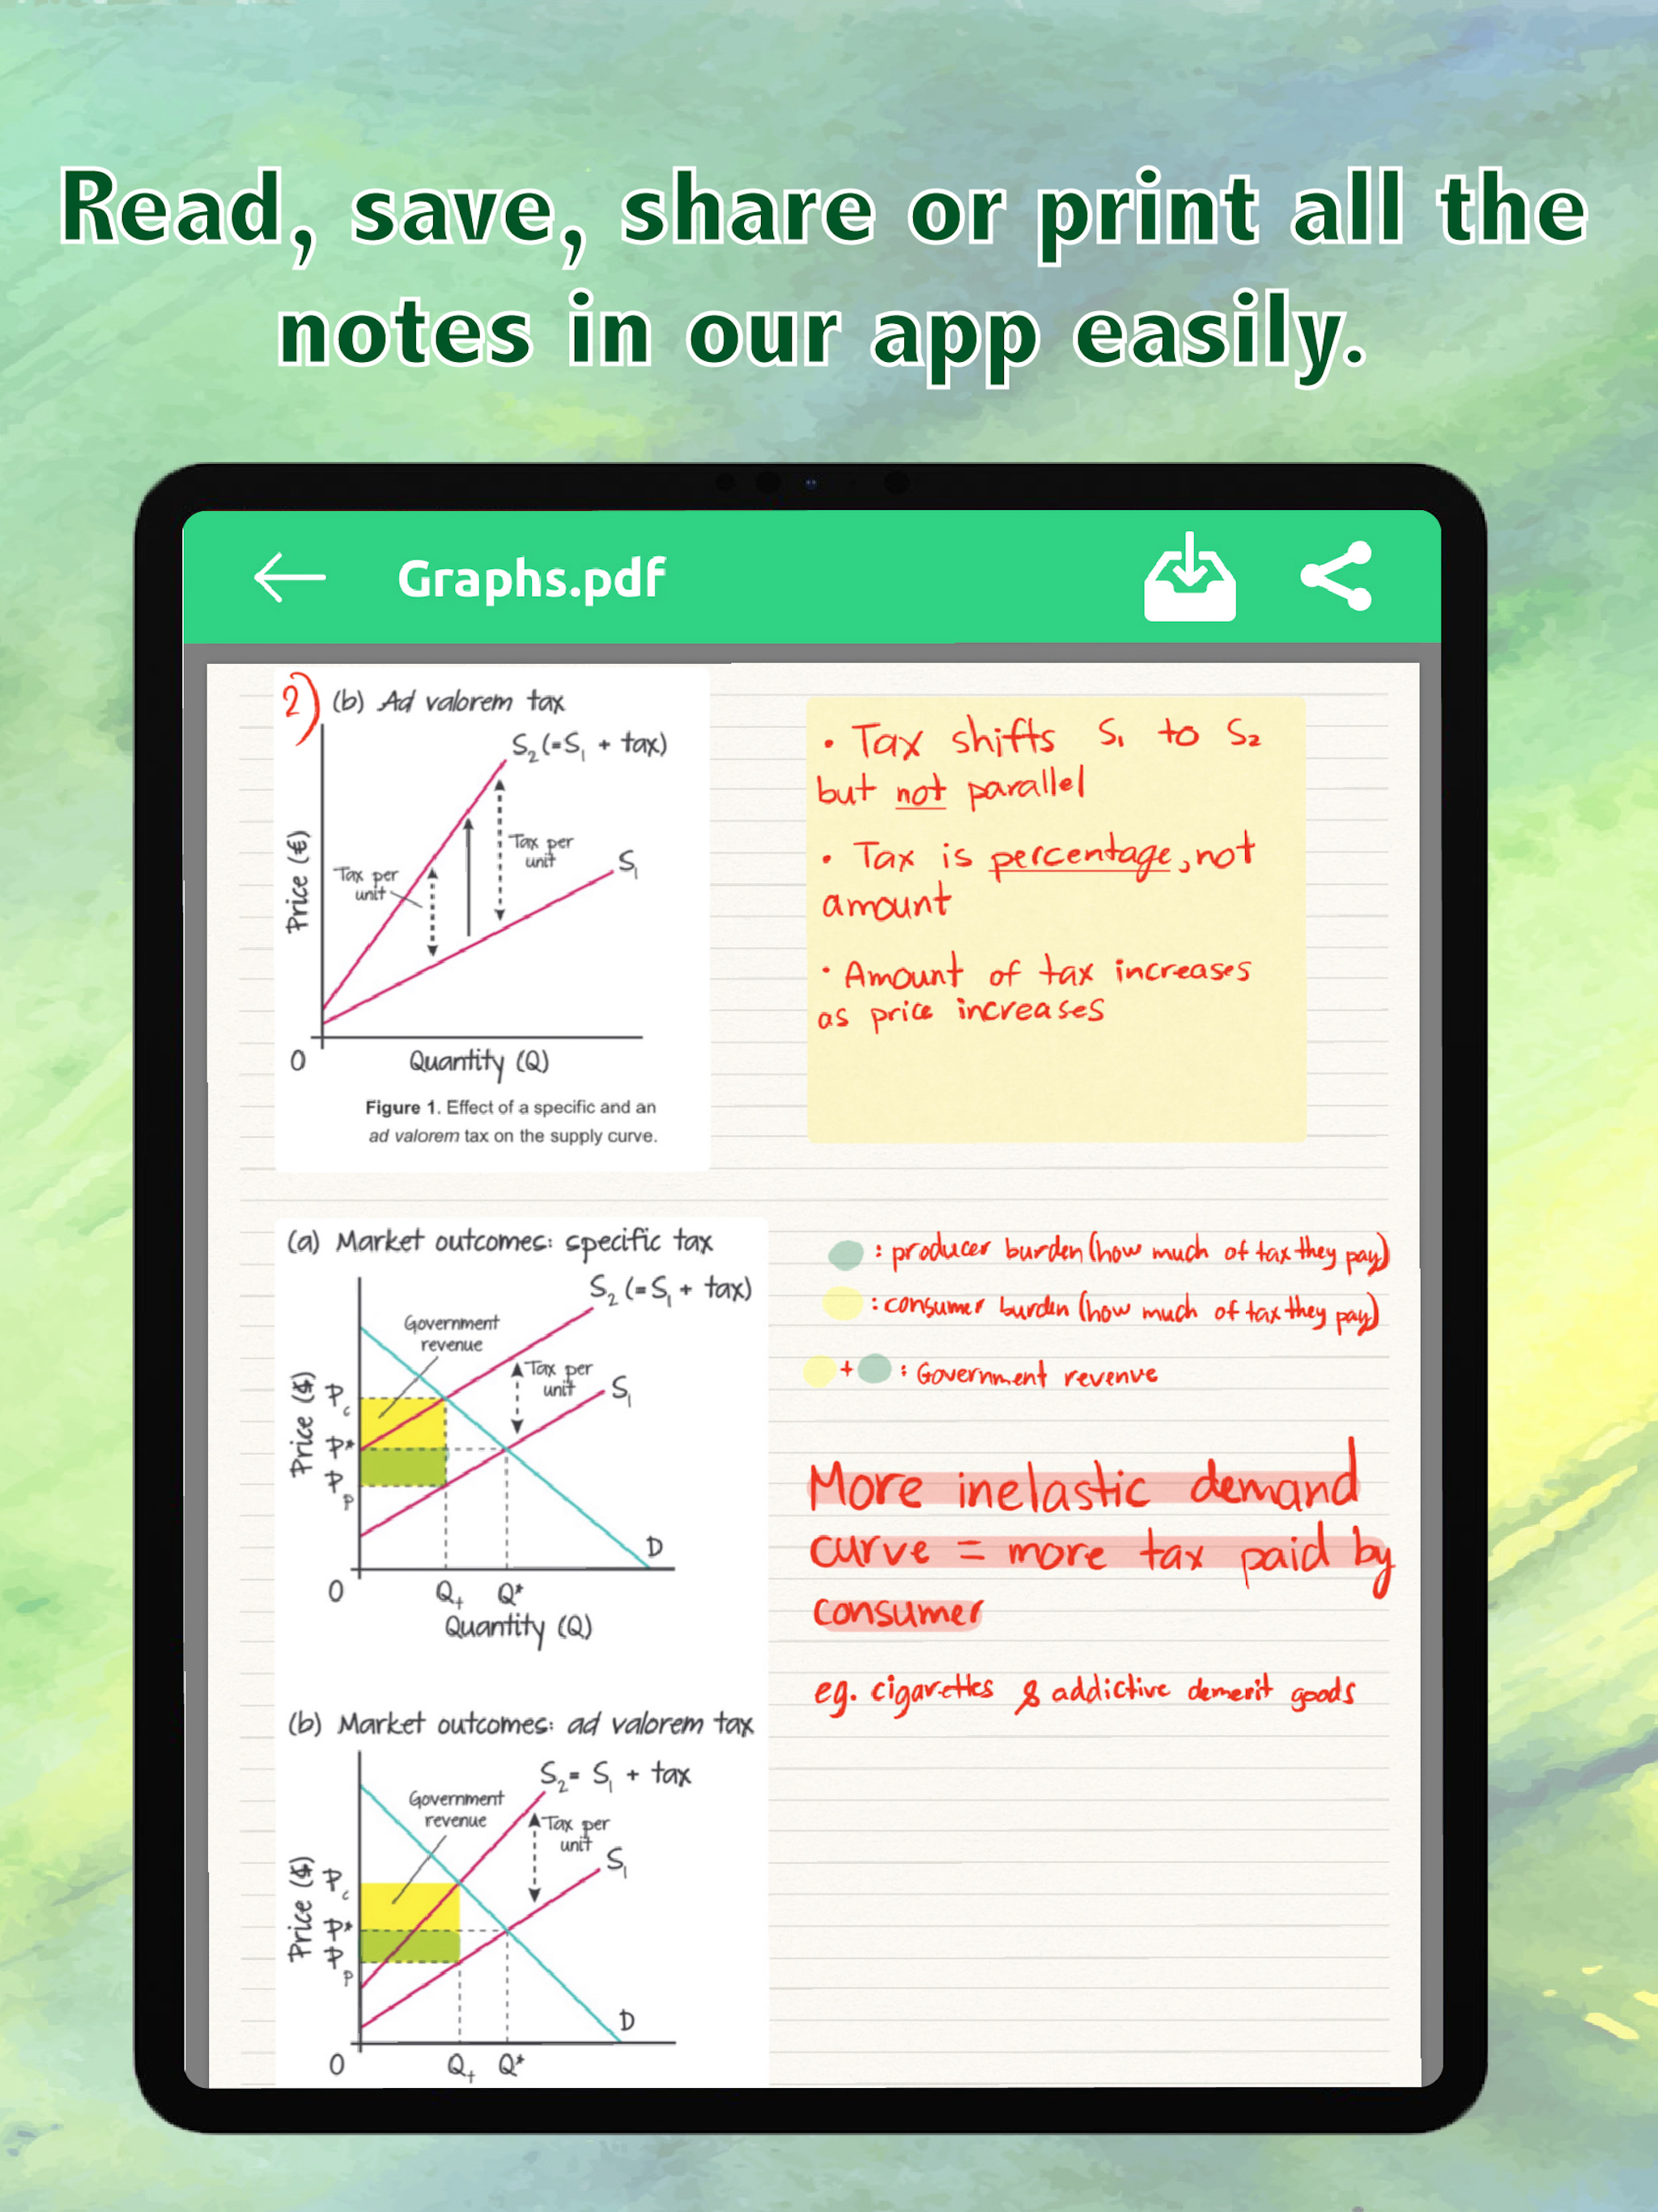 Read, save, share or print all the
notes in our app easily.
Graphs.pdf
2)
(b) Ad valorem tax
S₂ (=S₁ + tax)
Tax per
unit
Tax per
unit
S₁
Price (€)
0
Quantity (Q)
Figure 1. Effect of a specific and an
ad valorem tax on the supply curve.
• Tax shifts S₁ to S₂
but not parallel
• Tax is percentage, not
amount
• Amount of tax increases
as price increases
(a) Market outcomes: specific tax
S₂ (=S₁ + tax)
Government
revenue
Tax per
unit
S₁
Price ($)
Pc
P*
Pp
D
0
Qt
Q*
Quantity (Q)
: producer burden (how much of tax they pay)
: consumer burden (how much of tax they pay)
+ : Government revenue
More inelastic demand
curve = more tax paid by
consumer
eg. cigarettes & addictive demerit goods
(b) Market outcomes: ad valorem tax
S₂= S₁ + tax
Government
revenue
Tax per
unit
S₁
Price ($)
Pc
P*
Pp
D
0
Qt
Q*